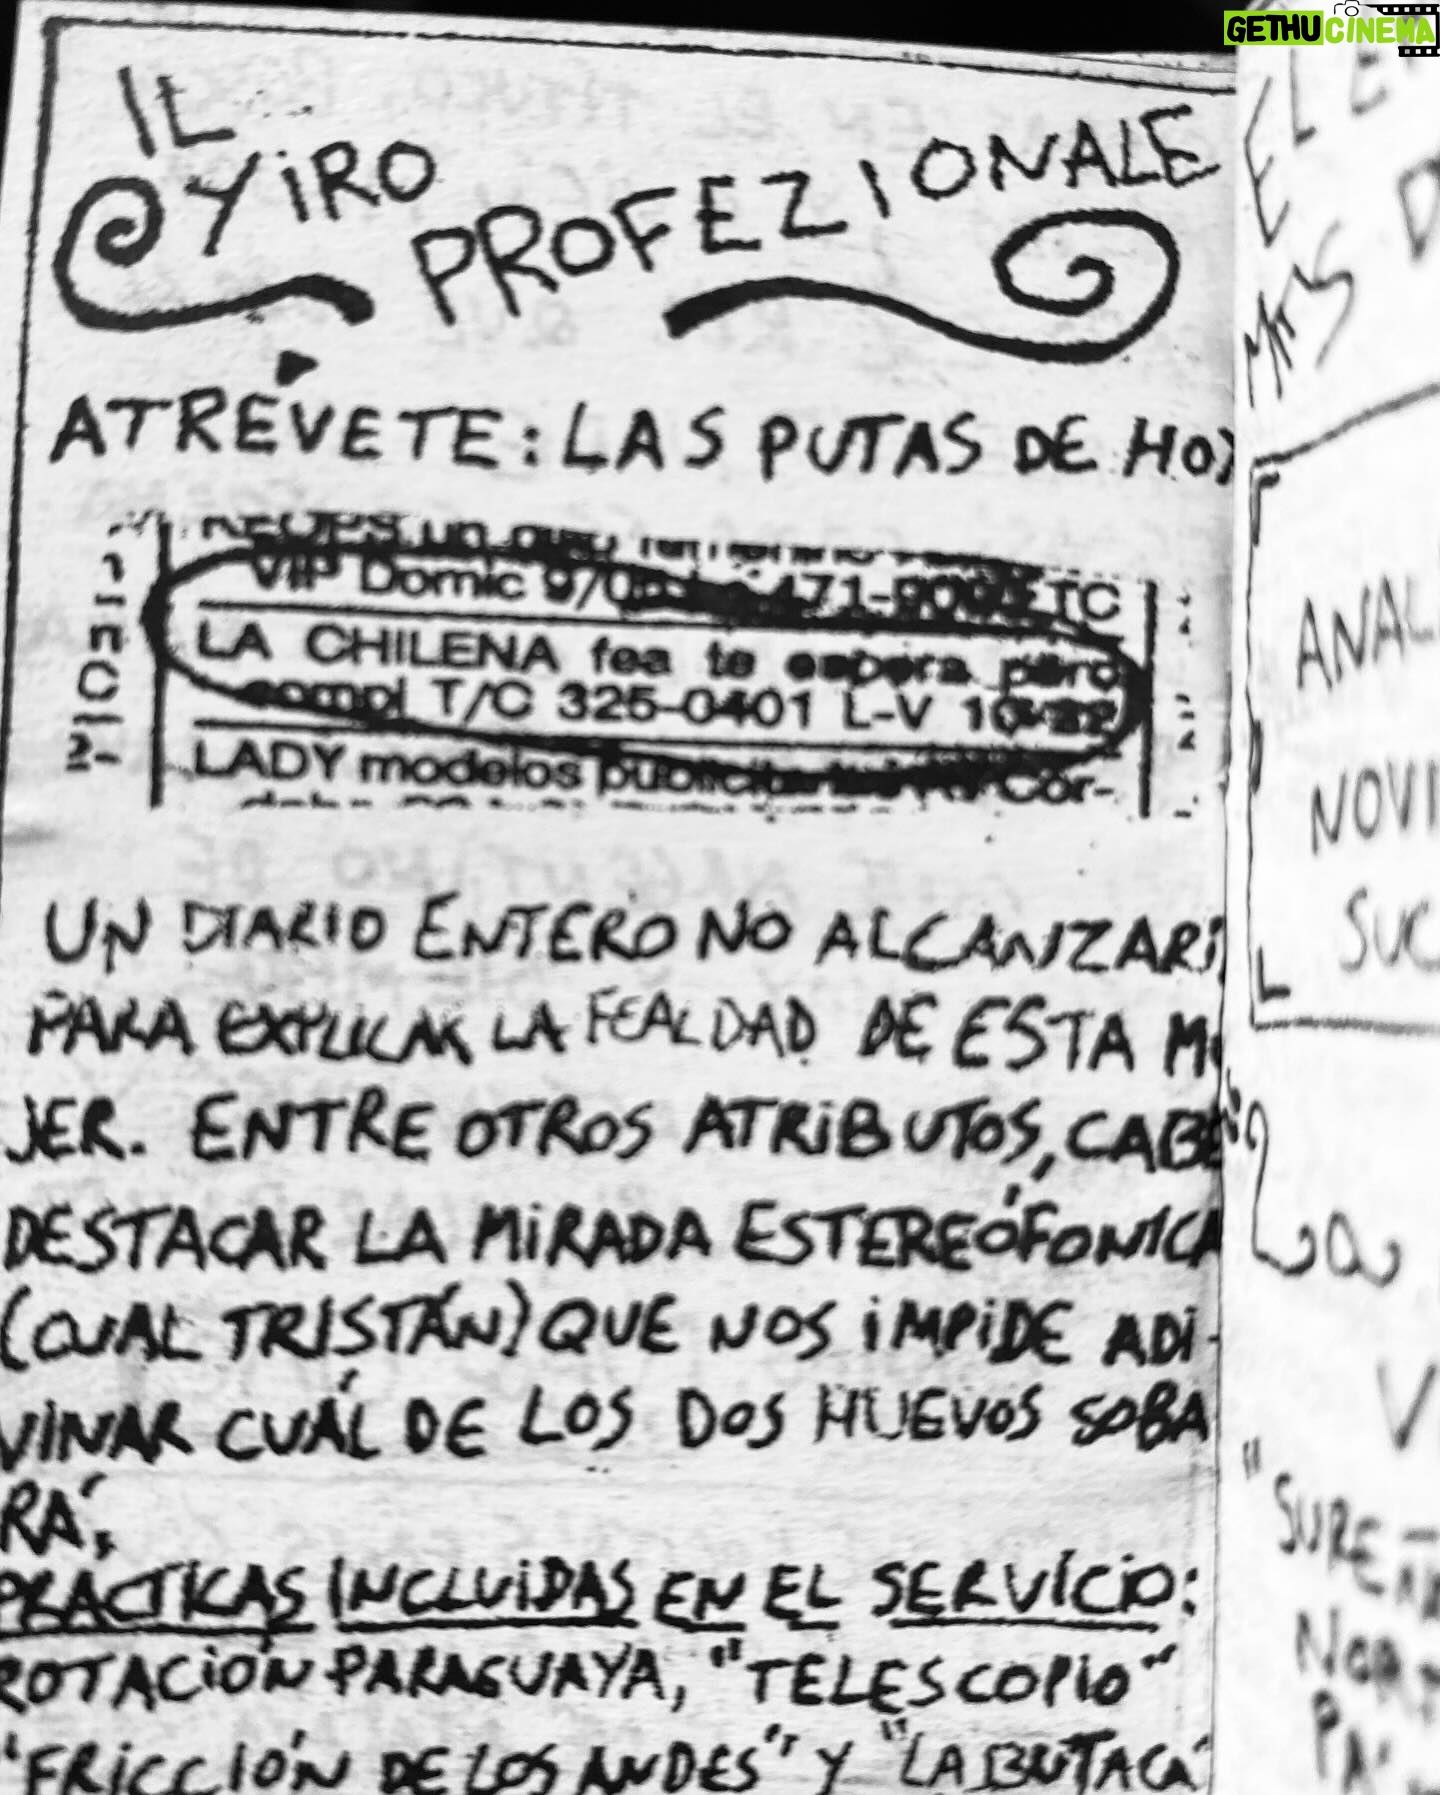 GETHUCINEMA
IL
YIRO
PROFEZIONALE
ATRÉVETE: LAS PUTAS DE HOY
VIP Domic 471- TC
LA CHILENA fea te espera pero
compl T/C 325-0401 L-V 10
LADY modelos Cór-
UN DIARIO ENTERO NO ALCANZARÍ
PARA EXPLICAR LA FEALDAD DE ESTA MU
JER. ENTRE OTROS ATRIBUTOS, CABE
DESTACAR LA MIRADA ESTEREÓFONICA
(CUAL TRISTÁN) QUE NOS IMPIDE ADI-
VINAR CUÁL DE LOS DOS HUEVOS SOBA
RÁ.
PRÁCTICAS INCLUIDAS EN EL SERVICIO:
ROTACIÓN PARAGUAYA, "TELESCOPIO"
"FRICCIÓN DE LOS ANDES" Y "LA BUTACA"
MrS D
ANAL
NOVI
SUC
La
V
"SURE